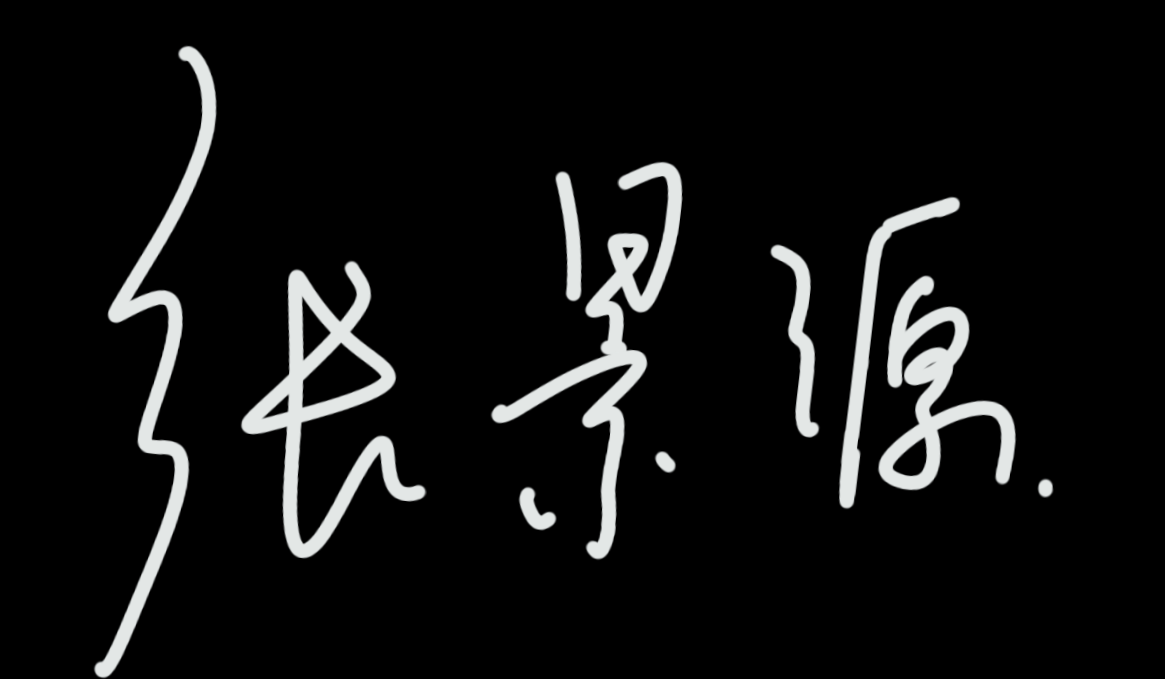 张景源